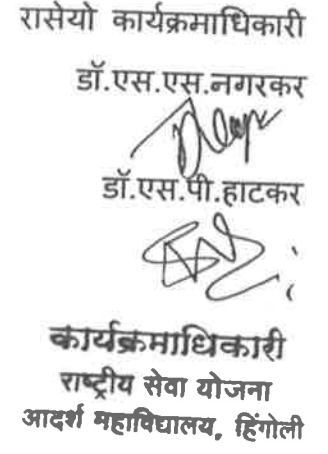 रासेयो कार्यक्रमाधिकारी
डॉ.एस.एस.नगरकर
डॉ.एस.पी.हाटकर
कार्यक्रमाधिकारी
राष्ट्रीय सेवा योजना
आदर्श महाविद्यालय, हिंगोली